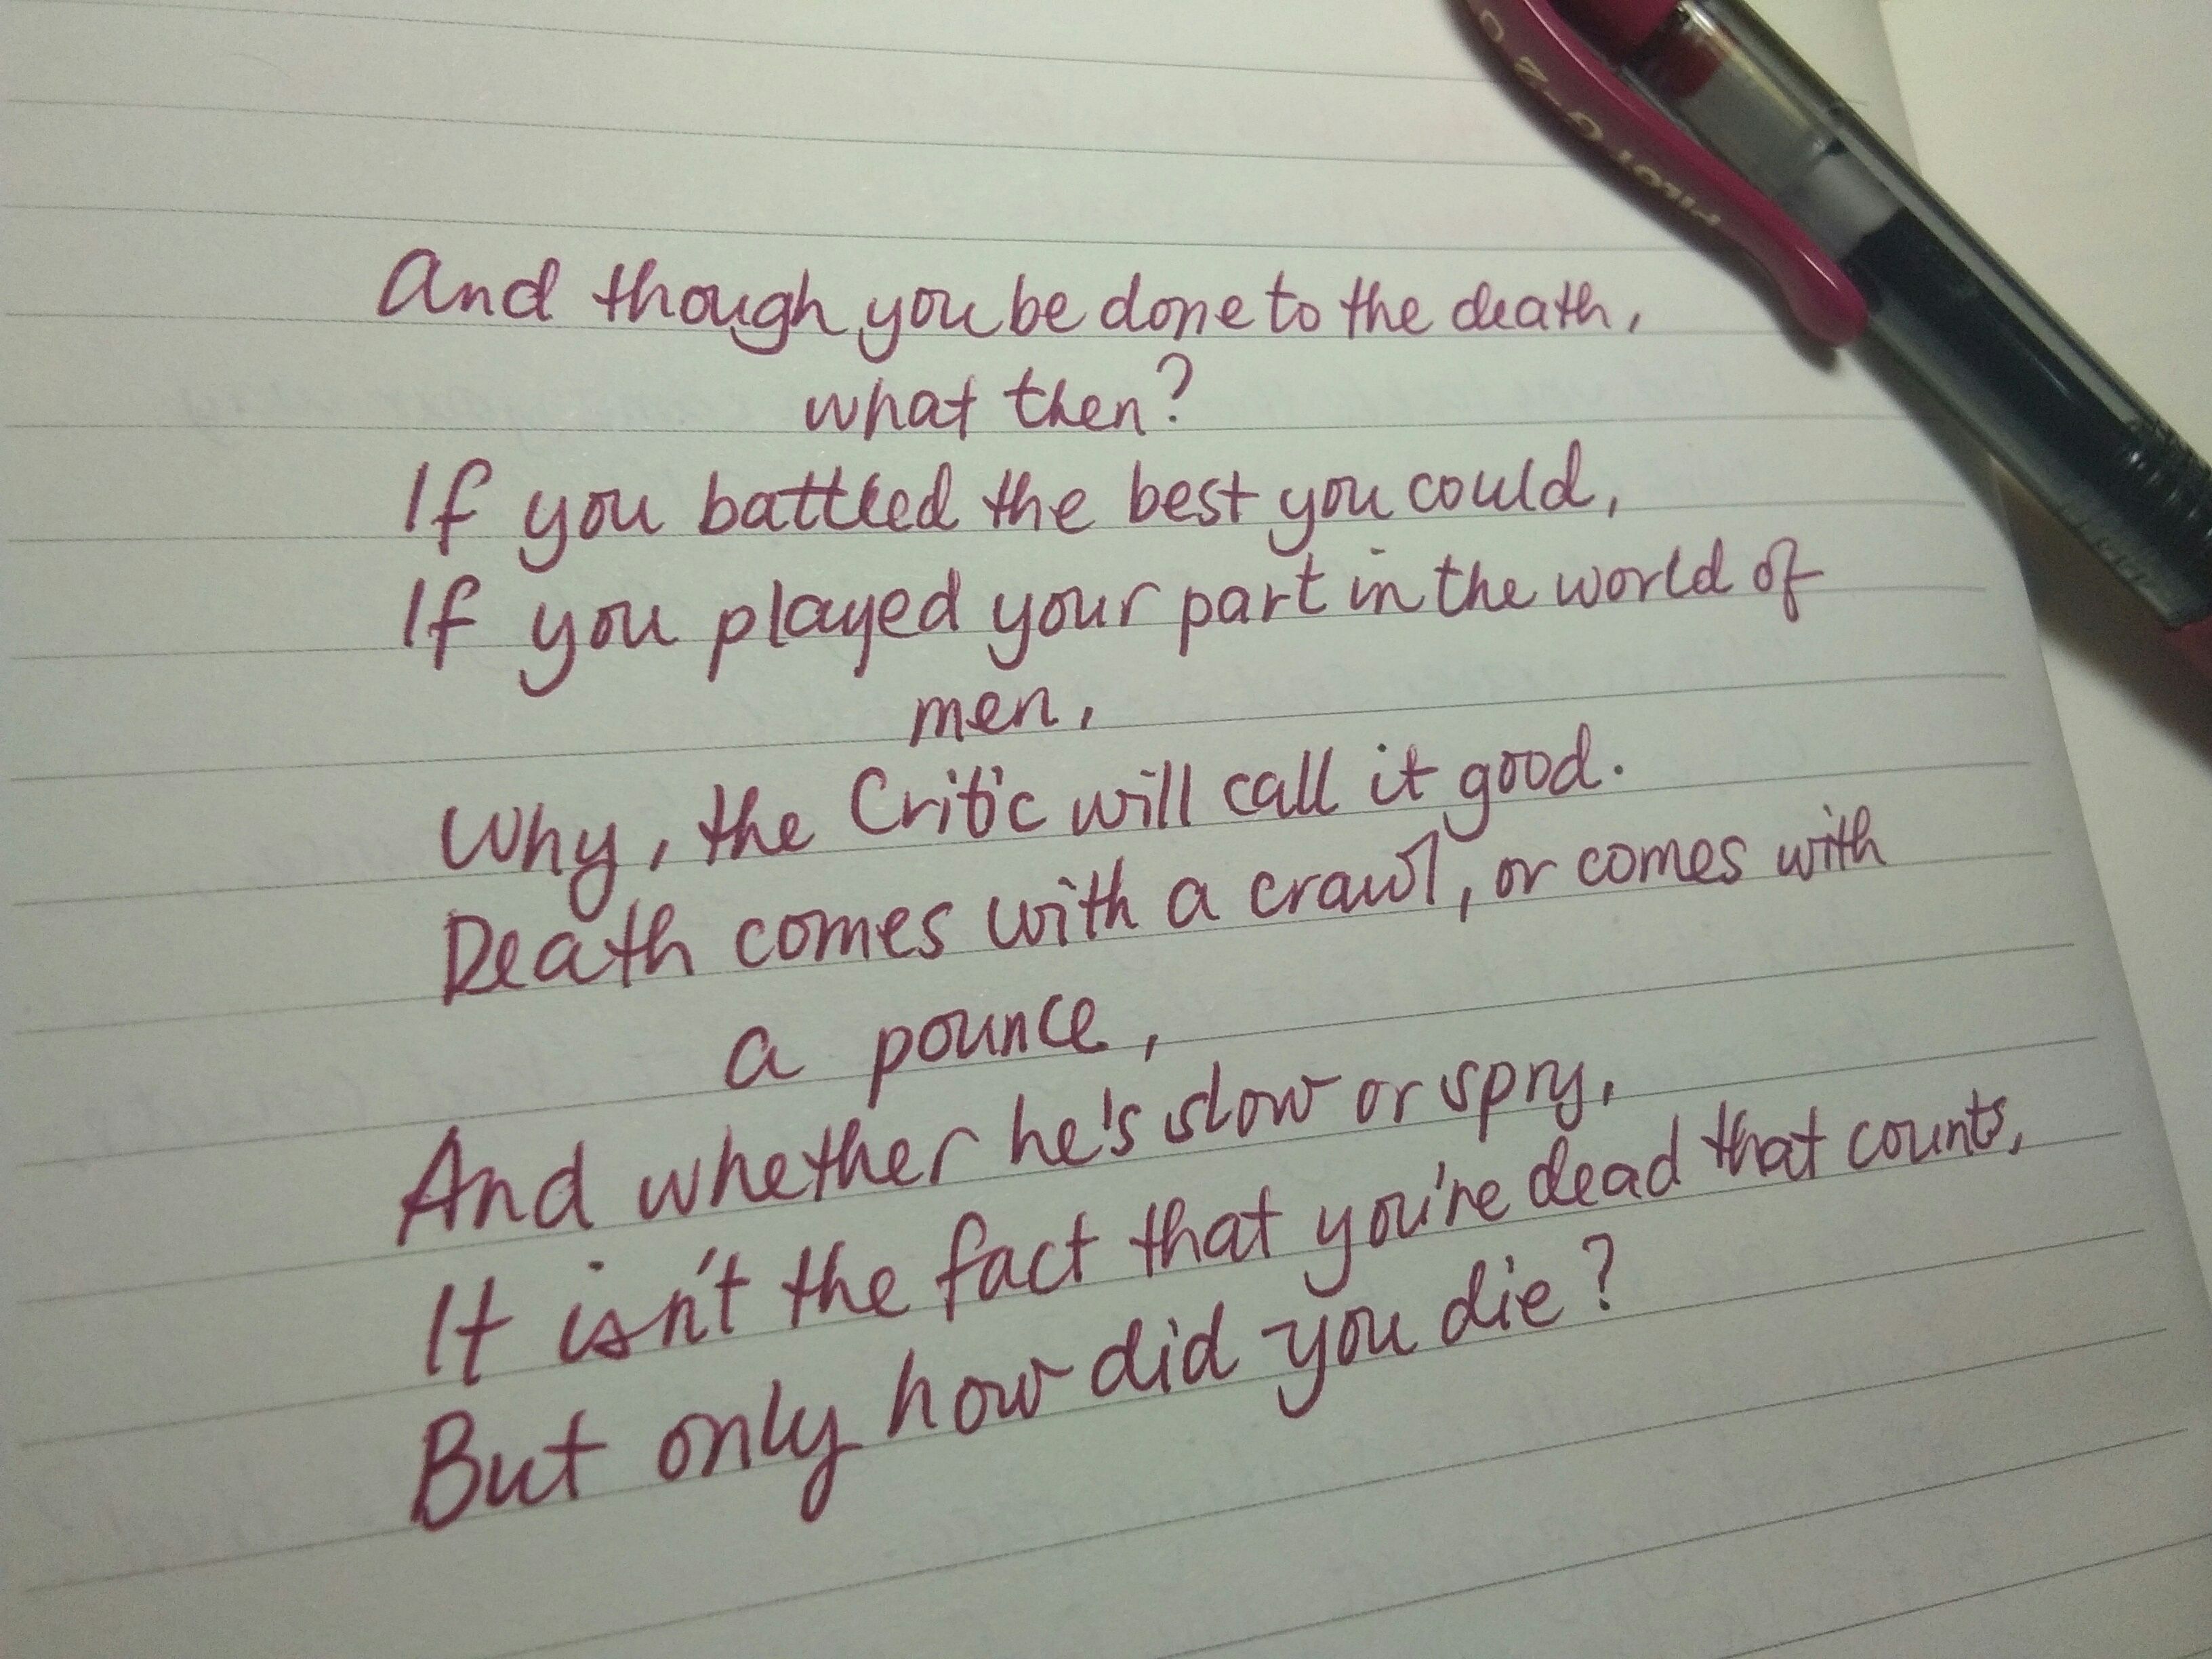 And though you be done to the death,
what then?
If you battled the best you could,
If you played your part in the world of
men,
Why, the Critic will call it good.
Death comes with a crawl, or comes with
a pounce,
And whether he's slow or spry,
It isn't the fact that you're dead that counts,
But only how did you die?
PILOT G-2 0